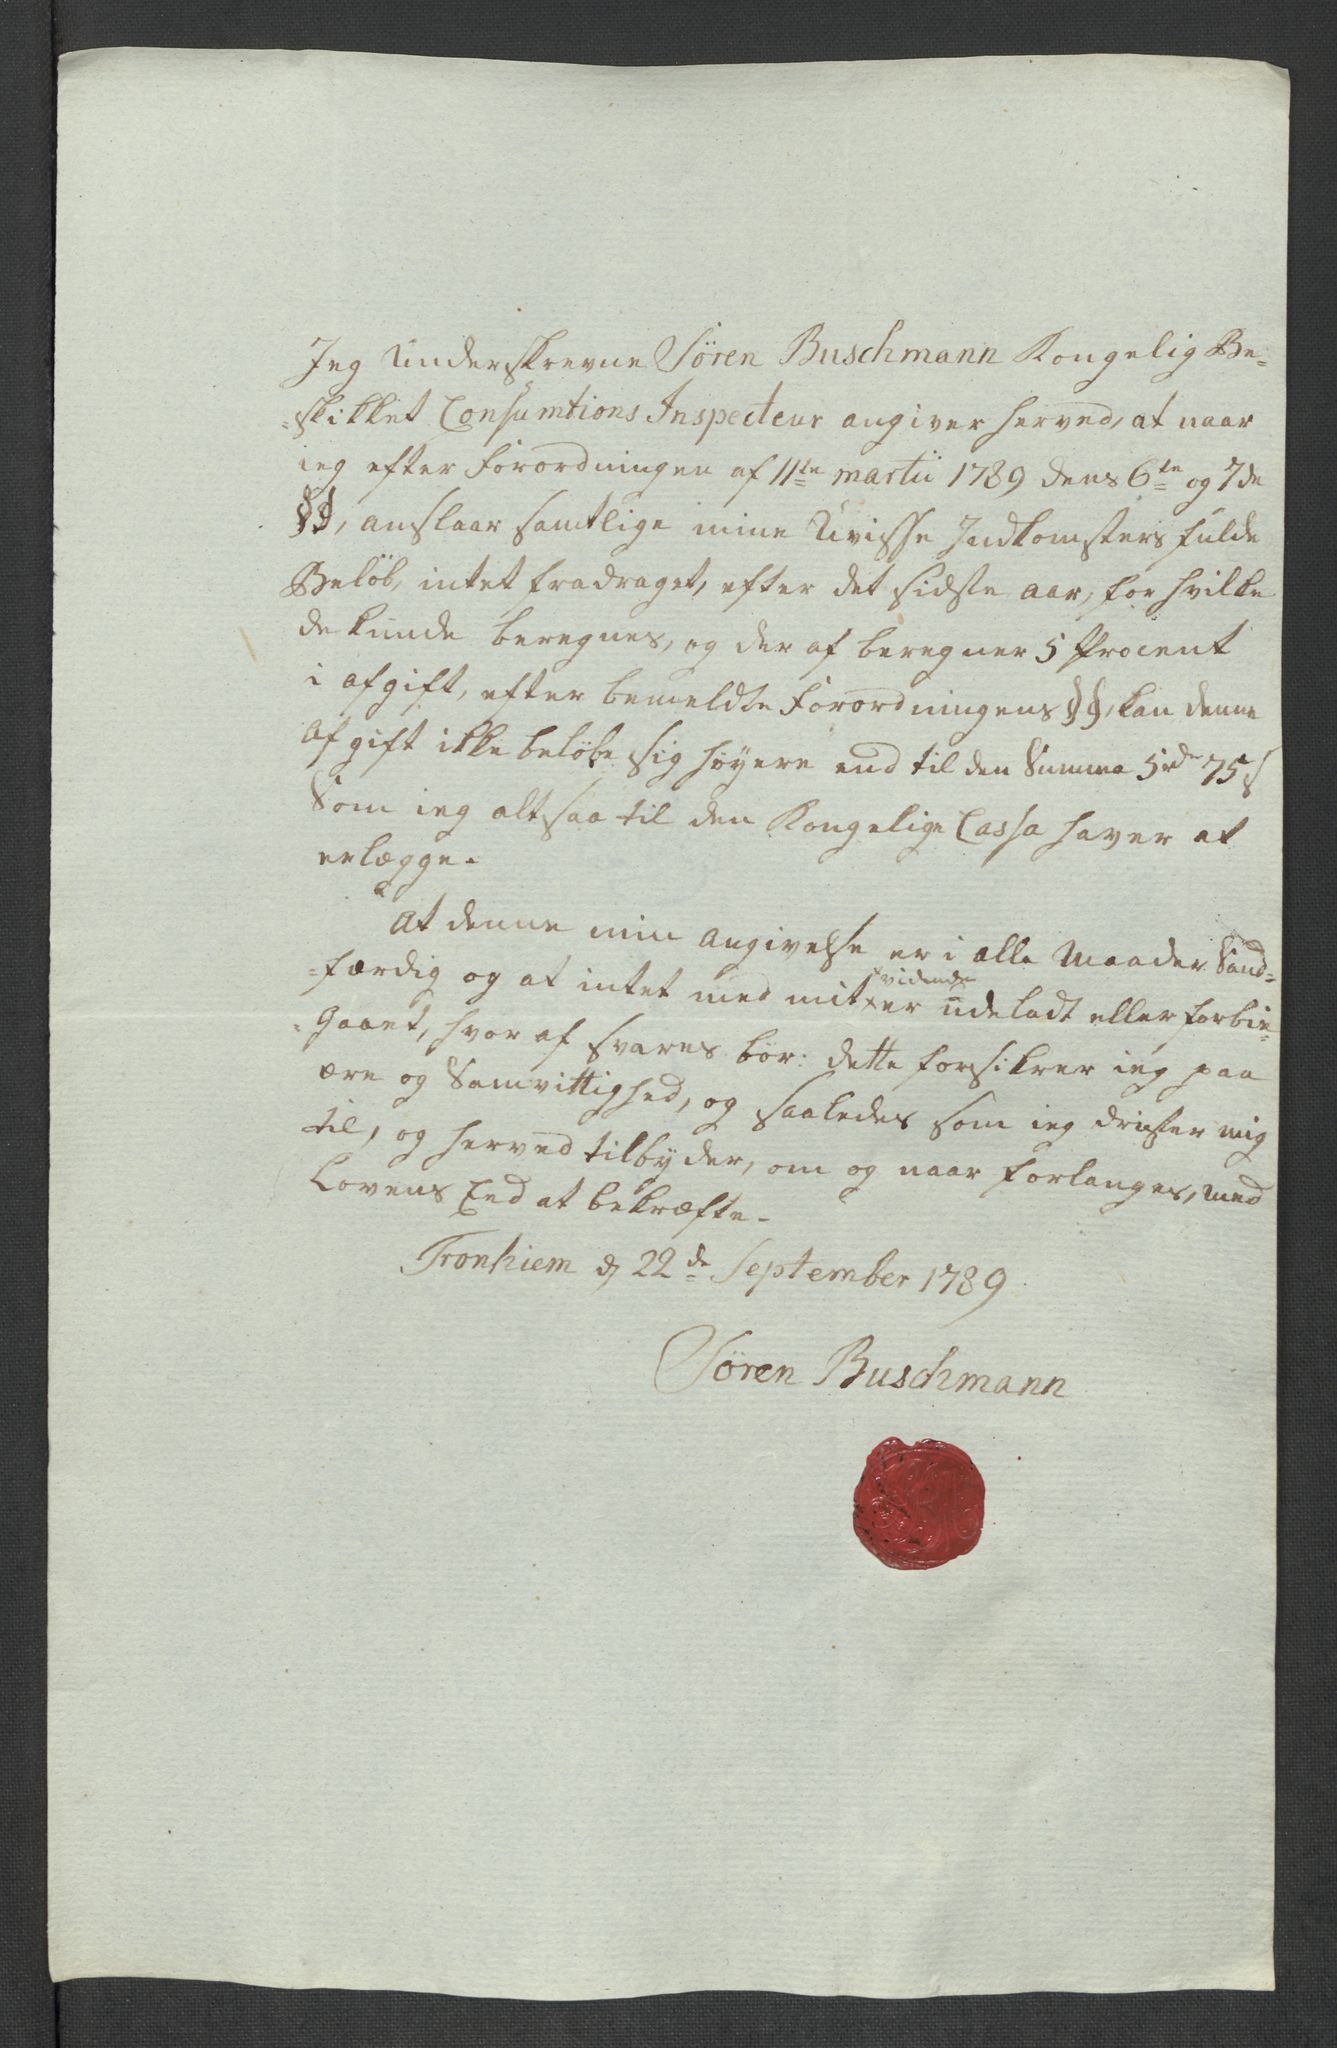 Jeg Underskrevne Sören Buschmann Kongelig Be-
-skikket Consumtions Inspecteur angiver herved, at naar
ieg efter Forordningen af 11te martii 1789 dens 6te og 7de
§§, anslaar samtlige mine Uvisse Indkomsters fulde
Beløb, intet fradraget, efter det sidste aar, for hvilke
de kunde beregnes, og der af beregner 5 Procent
i afgift, efter bemeldte Forordningens §§, kan denne
Afgift ikke beløbe sig høyere end til den Summa 5rdr 75s
Som ieg altsaa til den Kongelige Cassa haver at
erlægge.
At denne min Angivelse er i alle Maader Sand-
-færdig og at intet med mit vidende er udeladt eller forbie-
-gaaet, hvor af svares bör: dette forsikrer ieg paa
ære og Samvittighed, og saaledes som ieg drister mig
til, og herved tilbyder, om og naar forlanges, med
Lovens Eed at bekræfte.
Tronhiem d 22de September 1789
Sören Buschmann